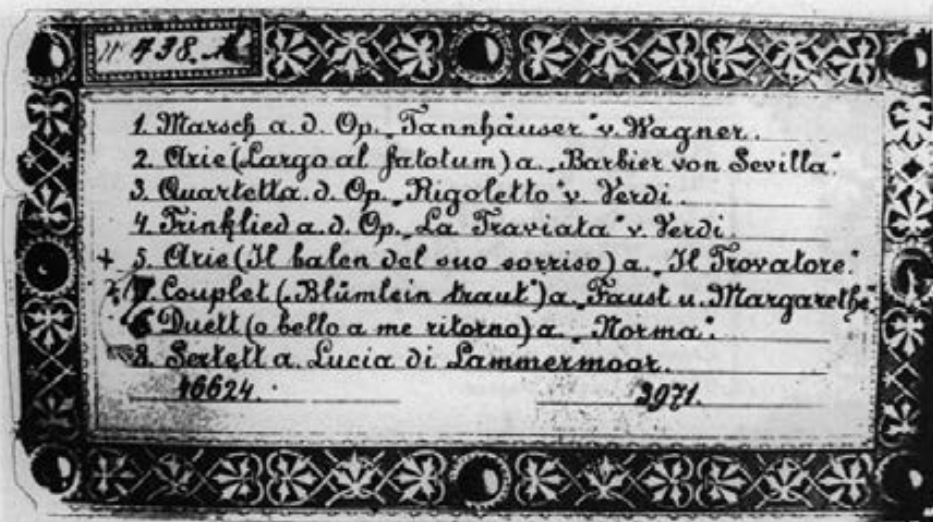 No 438. A
1. Marsch a. d. Op. „Tannhäuser“ v. Wagner.
2. Arie (Largo al fatotum) a. „Barbier von Sevilla“.
3. Quartett a. d. Op. „Rigoletto“ v. Verdi.
4. Trinklied a. d. Op. „La Traviata“ v. Verdi.
+ 5. Arie (Il balen del suo sorriso) a. „Il Trovatore“.
7. Couplet („Blümlein traut“) a. „Faust u. Margarethe“.
6. Duett (o bello a me ritorno) a. „Norma“.
8. Sextett a. Lucia di Lammermoor.
16624. 3971.